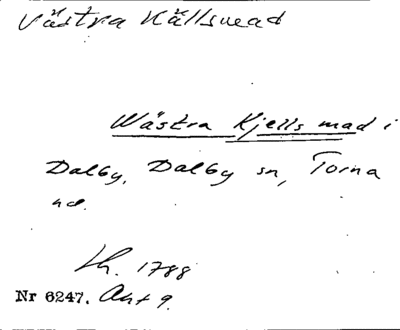 Västra Källsmad
Wästra Kjells mad i
Dalby, Dalby sn, Torna
hd.
Lh. 1788
Nr 6247. Akt 9.